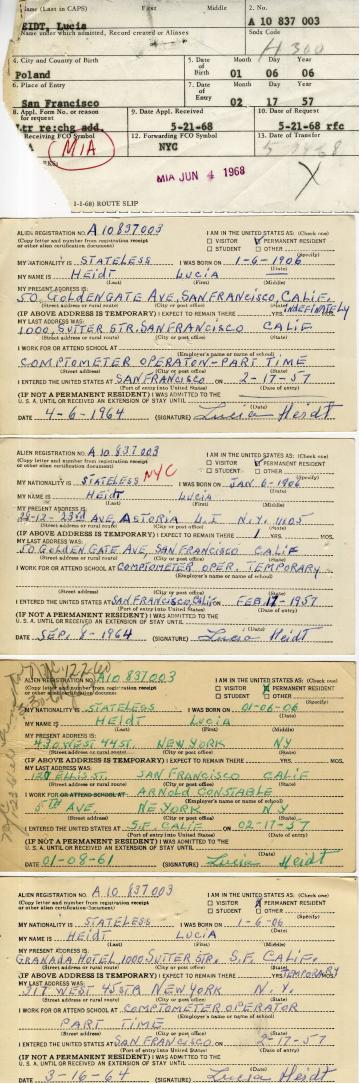 Name (Last in CAPS) First Middle 2. No.
HEIDT, Lucia A 10 837 003
Name under which Admitted, Record created or Aliases Sndx Code
H 300
4. City and Country of Birth 5. Date of Birth Month Day Year
Poland 01 06 06
6. Place of Entry 7. Date of Entry Month Day Year
San Francisco 02 17 57
8. Appl. Form No. or reason for request 9. Date Appl. Received 10. Date of Request
Ltr re:chg add. 5-21-68 5-21-68 rfc
Receiving FCO Symbol 12. Forwarding FCO Symbol 13. Date of Transfer
MIA NYC
MIA JUN 4 1968
X
1-1-68) ROUTE SLIP
ALIEN REGISTRATION NO. A10837003 I AM IN THE UNITED STATES AS: (Check one)
(Copy letter and number from registration receipt or other alien certification document) VISITOR PERMANENT RESIDENT
STUDENT OTHER (Specify)
MY NATIONALITY IS STATELESS I WAS BORN ON 1-6-1906
(Date)
MY NAME IS HEIDT LUCIA
(Last) (First) (Middle)
MY PRESENT ADDRESS IS:
50, GOLDENGATE AVE, SAN FRANCISCO, CALIF.
(Street address or rural route) (City or post office) (State)
(IF ABOVE ADDRESS IS TEMPORARY) I EXPECT TO REMAIN THERE INDEFINATELY YRS. MOS.
MY LAST ADDRESS WAS:
1000, SUTTER STR, SAN FRANCISCO CALIF
(Street address or rural route) (City or post office) (State)
I WORK FOR OR ATTEND SCHOOL AT
(Employer's name or name of school)
COMPTOMETER OPERATOR-PART TIME
(Street address) (City or post office) (State)
I ENTERED THE UNITED STATES AT SAN FRANCISCO ON 2-17-57
(Port of entry into United States) (Date of entry)
(IF NOT A PERMANENT RESIDENT) I WAS ADMITTED TO THE
U. S. A. UNTIL OR RECEIVED AN EXTENSION OF STAY UNTIL
(Date)
DATE 4-6-1964 (SIGNATURE) Lucia Heidt
ALIEN REGISTRATION NO. A10 837 003 I AM IN THE UNITED STATES AS: (Check one)
(Copy letter and number from registration receipt or other alien certification document) VISITOR PERMANENT RESIDENT
STUDENT OTHER (Specify)
MY NATIONALITY IS STATELESS NYC I WAS BORN ON JAN 6-1906
(Date)
MY NAME IS HEIDT LUCIA
(Last) (First) (Middle)
MY PRESENT ADDRESS IS:
28-12-33rd AVE, ASTORIA L.I N.Y. 11105
(Street address or rural route) (City or post office) (State)
(IF ABOVE ADDRESS IS TEMPORARY) I EXPECT TO REMAIN THERE 1 YRS. MOS.
MY LAST ADDRESS WAS:
50 GOLDEN GATE AVE, SAN FRANCISCO CALIF
(Street address or rural route) (City or post office) (State)
I WORK FOR OR ATTEND SCHOOL AT COMPTOMETER OPER. TEMPORARY
(Employer's name or name of school)
(Street address) (City or post office) (State)
I ENTERED THE UNITED STATES AT SAN FRANCISCO, Calif ON FEB. 17-1957
(Port of entry into United States) (Date of entry)
(IF NOT A PERMANENT RESIDENT) I WAS ADMITTED TO THE
U. S. A. UNTIL OR RECEIVED AN EXTENSION OF STAY UNTIL
(Date)
DATE SEPT. 8-1964 (SIGNATURE) Lucia Heidt
ALIEN REGISTRATION NO. A10 837003 I AM IN THE UNITED STATES AS: (Check one)
(Copy letter and number from registration receipt or other alien certification document) VISITOR PERMANENT RESIDENT
STUDENT OTHER (Specify)
MY NATIONALITY IS STATELESS I WAS BORN ON 01-06-06
(Date)
MY NAME IS HEIDT LUCIA
(Last) (First) (Middle)
MY PRESENT ADDRESS IS:
430 WEST 44 ST. NEW YORK NY
(Street address or rural route) (City or post office) (State)
(IF ABOVE ADDRESS IS TEMPORARY) I EXPECT TO REMAIN THERE YRS. MOS.
MY LAST ADDRESS WAS:
ELLIS ST. SAN FRANCISCO CALIF
(Street address or rural route) (City or post office) (State)
I WORK FOR OR ATTEND SCHOOL AT ARNOLD CONSTABLE
(Employer's name or name of school)
5TH AVE. NEW YORK N.Y
(Street address) (City or post office) (State)
I ENTERED THE UNITED STATES AT S.F. CALIF ON 02-17-57
(Port of entry into United States) (Date of entry)
(IF NOT A PERMANENT RESIDENT) I WAS ADMITTED TO THE
U. S. A. UNTIL OR RECEIVED AN EXTENSION OF STAY UNTIL
(Date)
DATE 01-08-61 (SIGNATURE) Lucia Heidt
ALIEN REGISTRATION NO. A 10 837003 I AM IN THE UNITED STATES AS: (Check one)
(Copy letter and number from registration receipt or other alien certification document) VISITOR PERMANENT RESIDENT
STUDENT OTHER (Specify)
MY NATIONALITY IS STATELESS I WAS BORN ON 1-6-06
(Date)
MY NAME IS HEIDT LUCIA
(Last) (First) (Middle)
MY PRESENT ADDRESS IS:
GRANADA HOTEL 1000 SUTTER STR. S.F. CALIF.
(Street address or rural route) (City or post office) (State)
(IF ABOVE ADDRESS IS TEMPORARY) I EXPECT TO REMAIN THERE TEMPORARY YRS. MOS.
MY LAST ADDRESS WAS:
317 WEST 45 STR NEW YORK N.Y.
(Street address or rural route) (City or post office) (State)
I WORK FOR OR ATTEND SCHOOL AT COMPTOMETER OPERATOR
(Employer's name or name of school)
PART TIME
(Street address) (City or post office) (State)
I ENTERED THE UNITED STATES AT SAN FRANCISCO ON 2-17-57
(Port of entry into United States) (Date of entry)
(IF NOT A PERMANENT RESIDENT) I WAS ADMITTED TO THE
U. S. A. UNTIL OR RECEIVED AN EXTENSION OF STAY UNTIL
(Date)
DATE 3-16-64 (SIGNATURE) Lucia Heidt